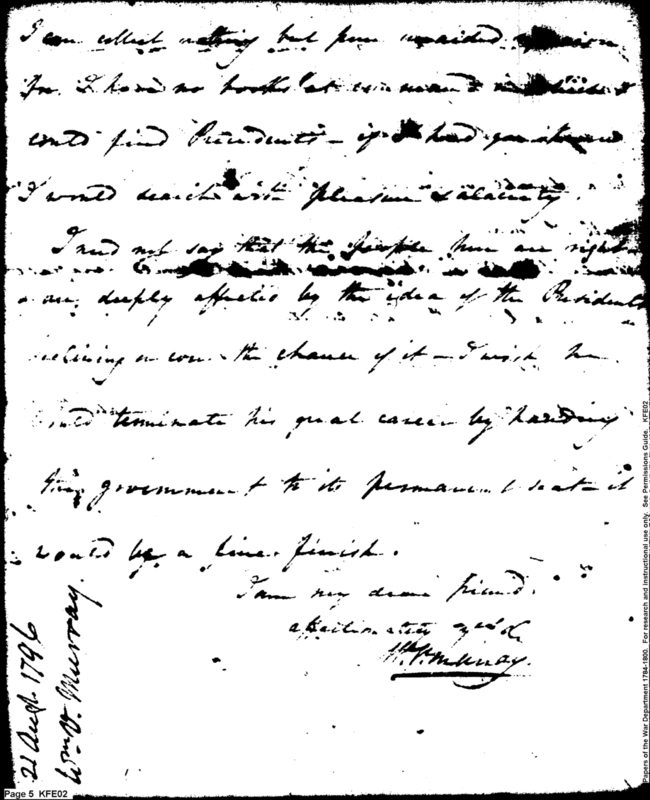 I can collect nothing but pure unaided
for I have no books at command in which I
could find Precedents — if I had you know
I would search with pleasure & alacrity.
I need not say that the people here are right
& are deeply affected by the idea of the Presidents
the chance of it — I wish he
terminate his great career by handing
this government to its permanent seat — it
would be a fine finish.
I am my dear friend.
affectionately
Wm. V. Murray.
21 Augt. 1796
Wm. V. Murray.
Page 5 KFE02
Papers of the War Department 1784-1800. For research and instructional use only. See Permissions Guide. KFE02